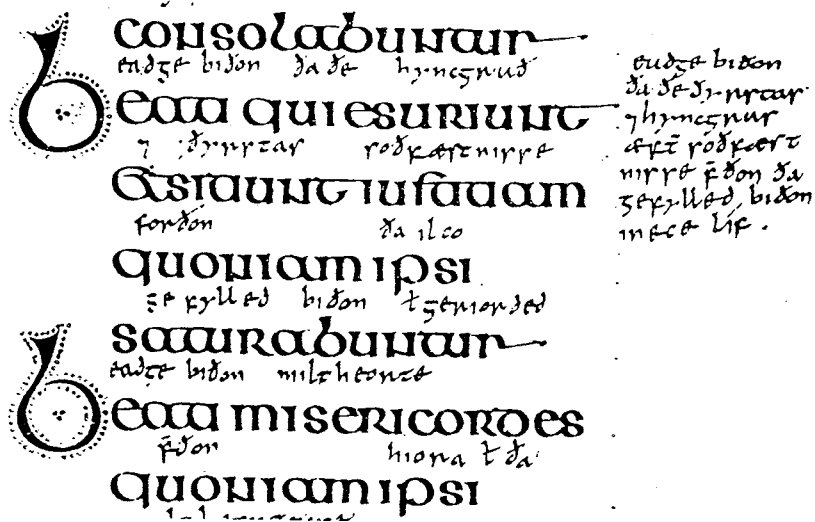 consolabuntur
eadge biðon ða ðe hyncgrað
Beati qui esuriunt
⁊ ðyrstas soðfæstnisse
et sitiunt iustitiam
forðon ða ilco
quoniam ipsi
gefylled biðon ł geriorded
saturabuntur
eadge biðon miltheorte
Beati misericordes
f̄ðon hiora ł ða
quoniam ipsi
eadge biðon
ða ðe ðyrstas
⁊ hyncgras
æft̄ soðfæst
nisse f̄ðon ða
gefylled biðon
in ece líf .